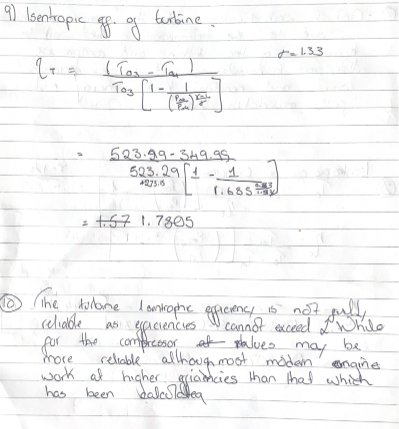 9) Isentropic eff. of turbine.
γ = 1.33
η_T = (T_03 - T_04) / T_03 [1 - 1 / (P_03/P_04)^(γ-1/γ)]
= 523.99 - 349.99 / 523.29 +273.15 [1 - 1 / 1.685]
= 1.57 1.7305
10) The turbine Isentropic efficiency is not fully
reliable as efficiencies cannot exceed 1 While
for the compressor values may be
more reliable although most modern engine
work at higher efficiencies than that which
has been calculated